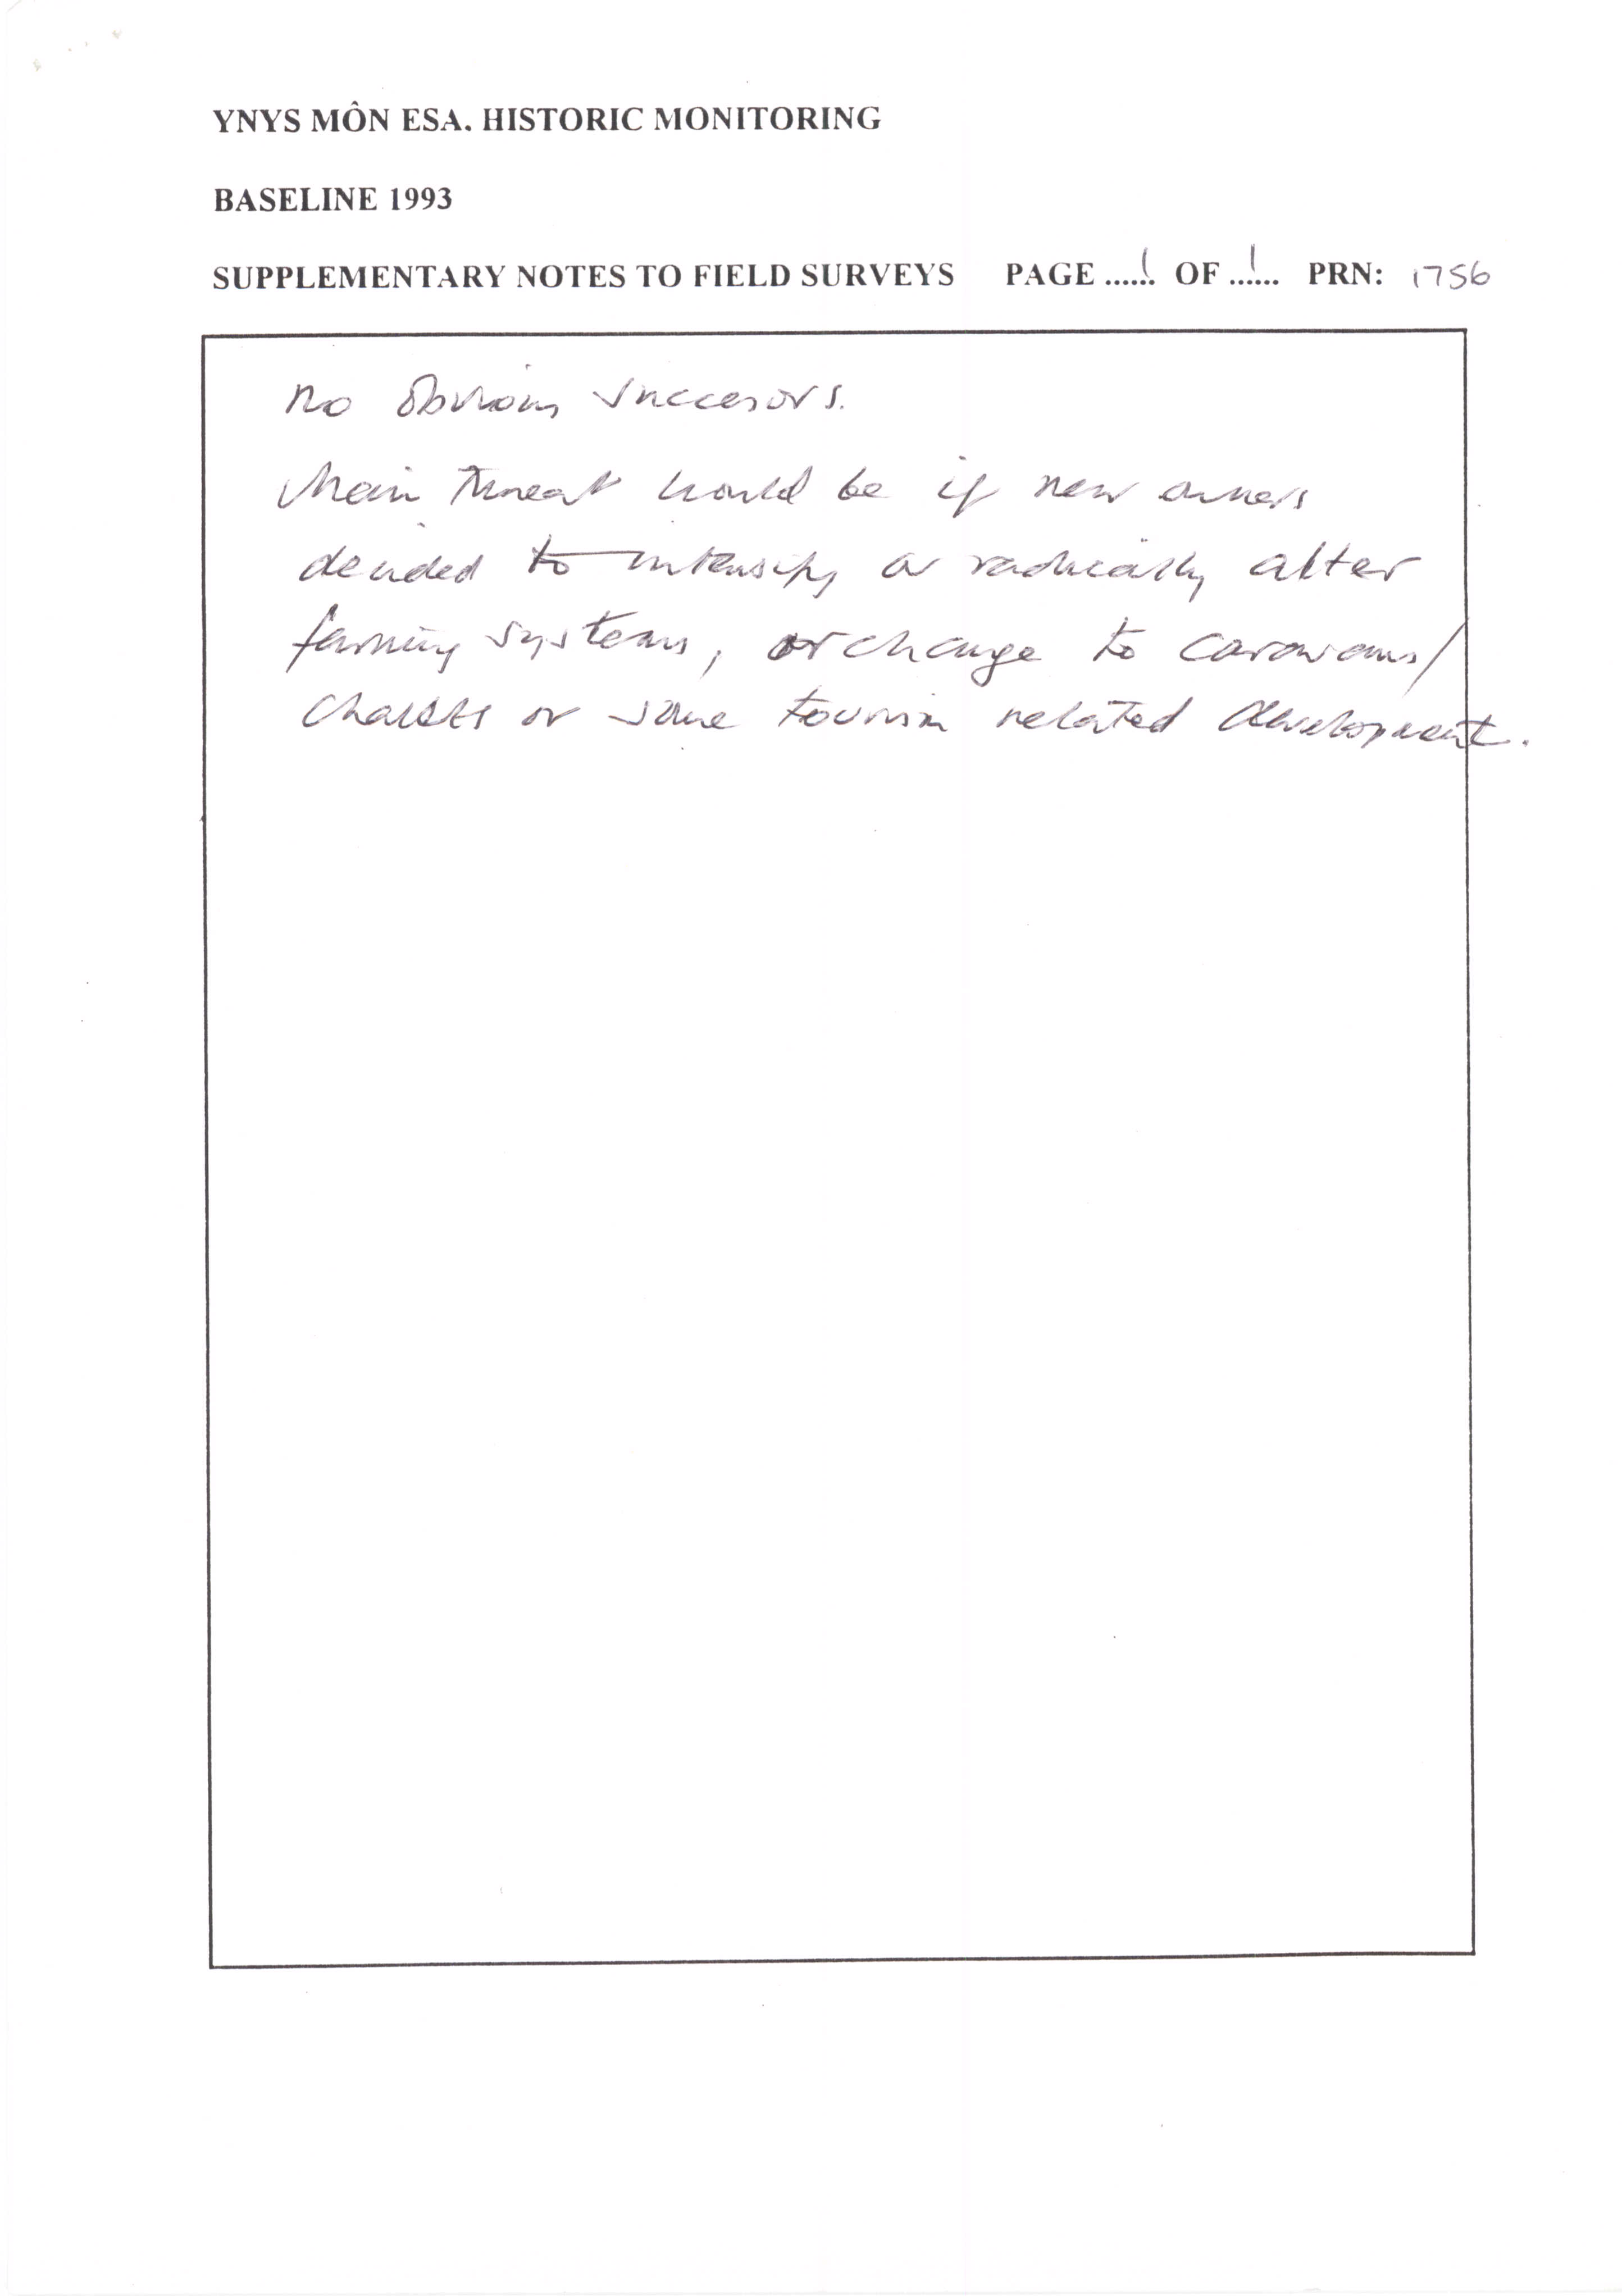 YNYS MÔN ESA. HISTORIC MONITORING
BASELINE 1993
SUPPLEMENTARY NOTES TO FIELD SURVEYS PAGE ...1 OF ...1... PRN: 1756
No obvious succesors.
Main threat would be if new owners
decided to intensify or radically alter
farming systems, or change to caravans/
chalets or some tourism related development.